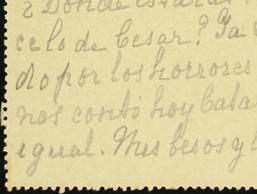 ¿Donde estará?
celo de Cesar? Ya
do por los horrores
nos contó hoy Cata
igual. Mis besos y